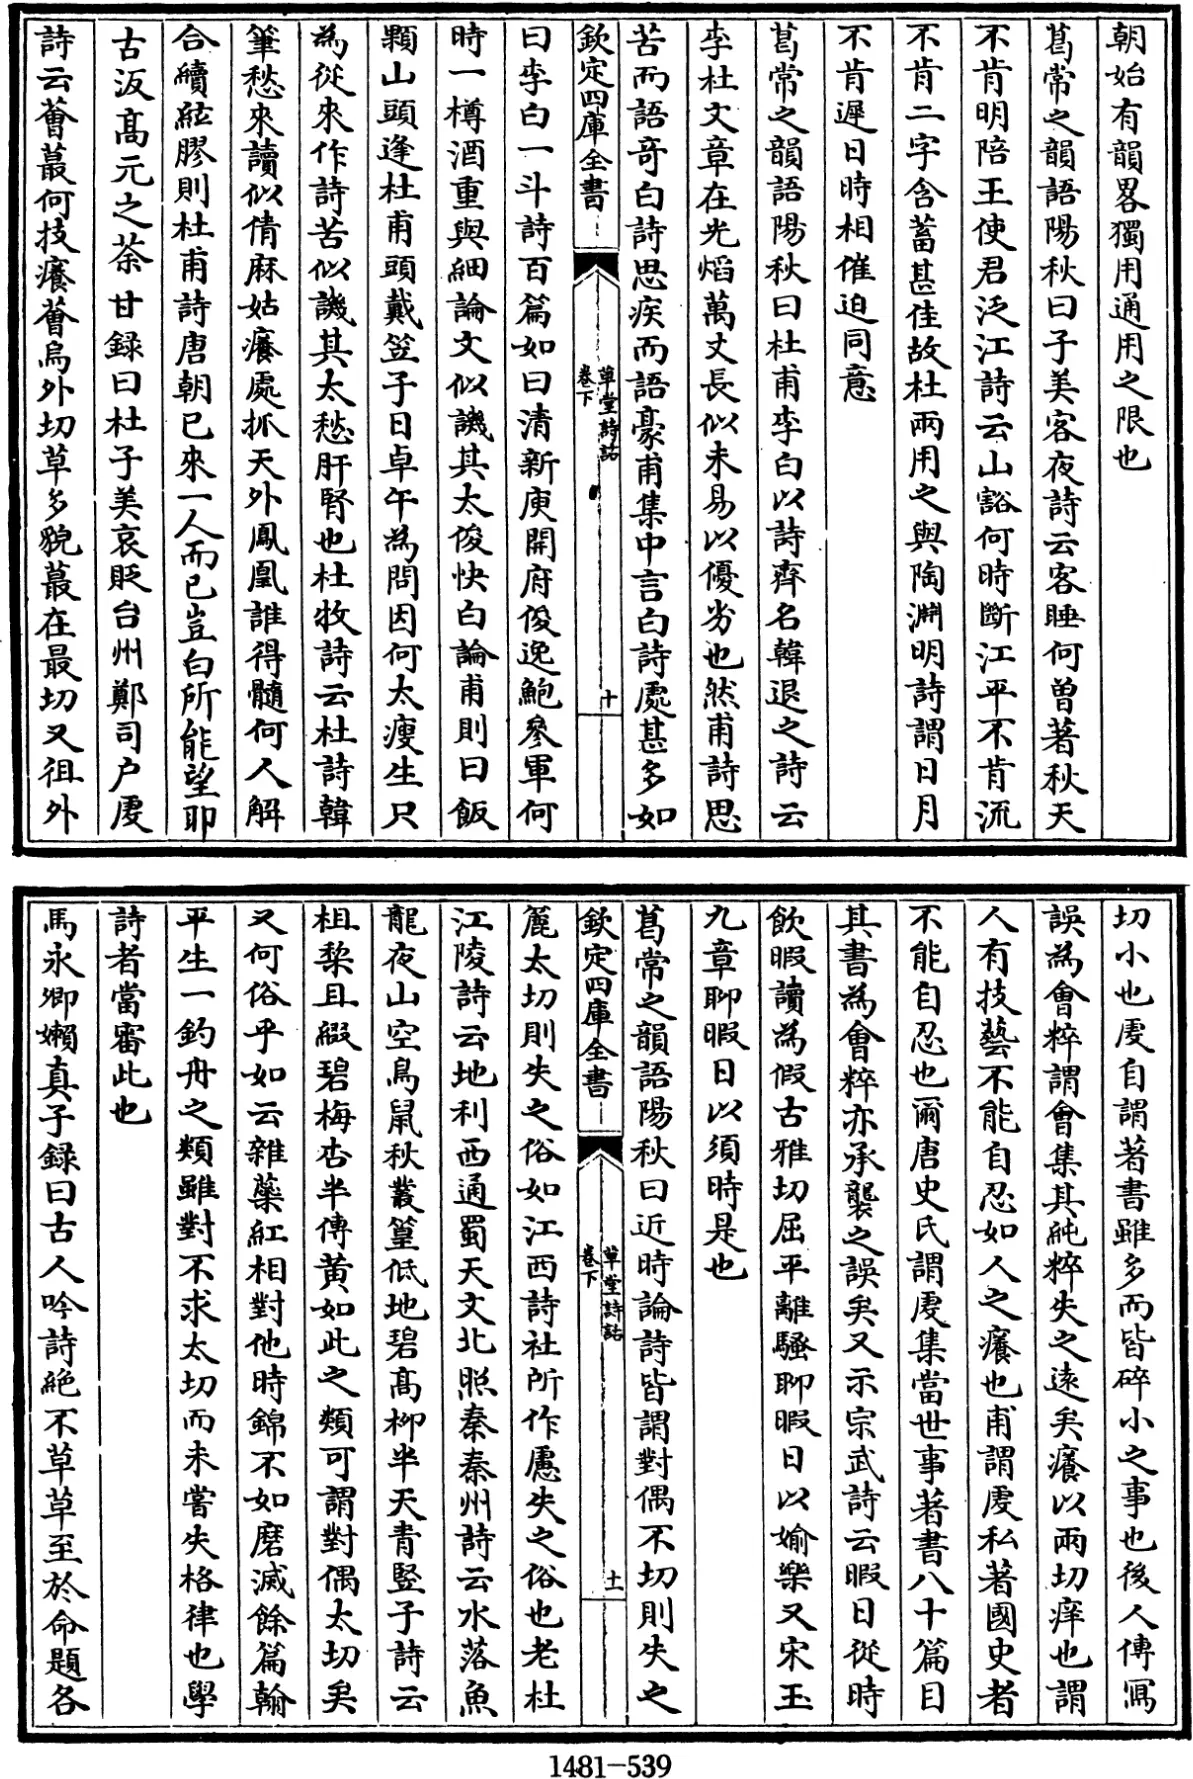 朝始有韻畧獨用通用之限也
葛常之韻語陽秋曰子美客夜詩云客睡何曽著秋天
不肯明陪王使君泛江詩云山豁何時斷江平不肯流
不肯二字含蓄甚佳故杜兩用之與陶淵明詩謂日月
不肯遲日時相催迫同意
葛常之韻語陽秋曰杜甫李白以詩齊名韓退之詩云
李杜文章在光熖萬丈長似未易以優劣也然甫詩思
苦而語奇白詩思疾而語豪甫集中言白詩處甚多如
欽定四庫全書
草堂詩話
卷下
十
曰李白一斗詩百篇如曰清新庾開府俊逸鮑參軍何
時一樽酒重與細論文似譏其太俊快白論甫則曰飯
顆山頭逢杜甫頭戴笠子日卓午為問因何太瘦生只
為從來作詩苦似譏其太愁肝腎也杜牧詩云杜詩韓
筆愁來讀似倩麻姑癢處抓天外鳳凰誰得髓何人解
合續絃膠則杜甫詩唐朝已來一人而已豈白所能望耶
古汲髙元之荼甘録曰杜子美哀貶台州鄭司户䖍
詩云薈蕞何技癢薈烏外切草多貌蕞在最切又徂外
切小也䖍自謂著書雖多而皆碎小之事也後人傳寫
誤為會粹謂會集其純粹失之逺矣癢以兩切痒也謂
人有技藝不能自忍如人之癢也甫謂䖍私著國史者
不能自忍也爾唐史氏謂䖍集當世事著書八十篇目
其書為會粹亦承襲之誤矣又示宗武詩云暇日從時
飲暇讀為假古雅切屈平離騷聊暇日以婾樂又宋玉
九章聊暇日以須時是也
葛常之韻語陽秋曰近時論詩皆謂對偶不切則失之
欽定四庫全書
草堂詩話
卷下
十一
麄太切則失之俗如江西詩社所作慮失之俗也老杜
江陵詩云地利西通蜀天文北照秦秦州詩云水落魚
龍夜山空鳥鼠秋叢篁低地碧髙柳半天青豎子詩云
柤棃且綴碧梅杏半傳黄如此之類可謂對偶太切矣
又何俗乎如云雜蘂紅相對他時錦不如磨滅餘篇翰
平生一釣舟之類雖對不求太切而未嘗失格律也學
詩者當審此也
馬永卿嬾真子録曰古人吟詩絶不草草至於命題各
1481-539